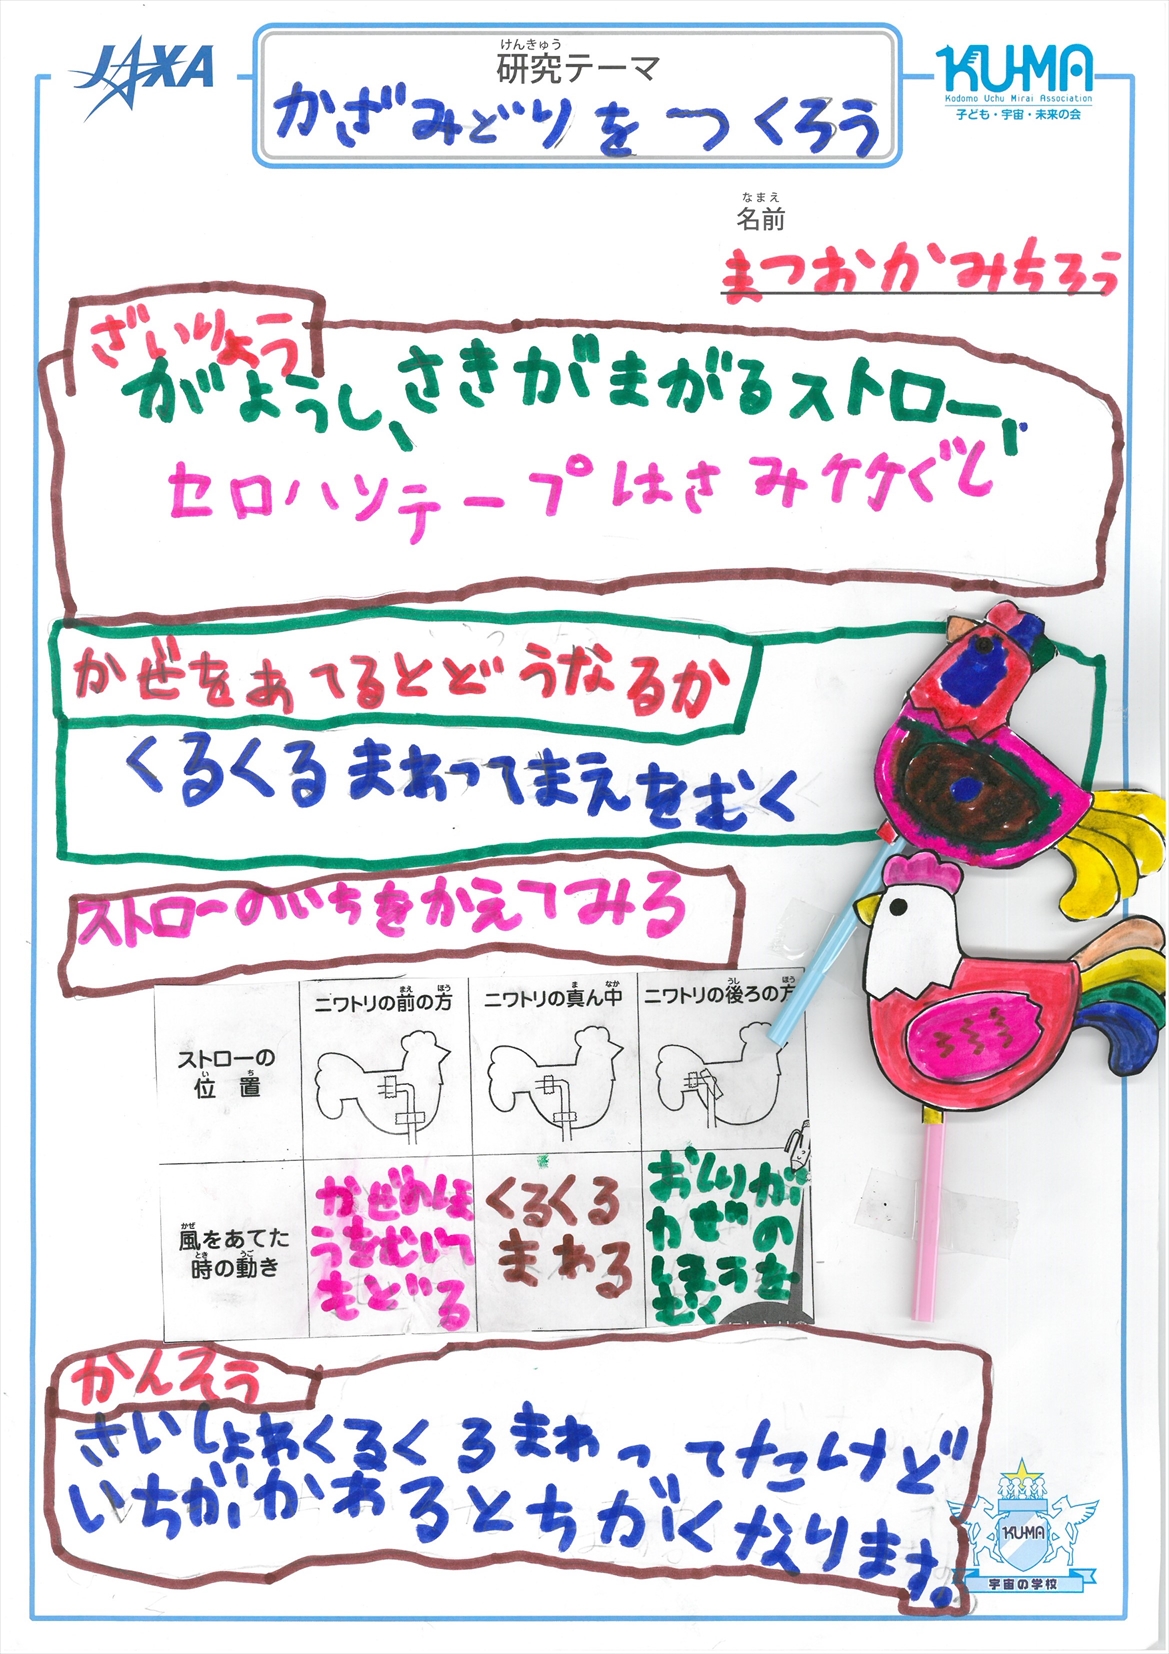 JAXA
けんきゅう
研究テーマ
かざみどりをつくろう
KU-MA
Kodomo Uchu Mirai Association
子ども・宇宙・未来の会
なまえ
名前
まつおかみちろう
ざいりょう
がようし、さきがまがるストロー、
セロハンテープはさみケケぐし
かぜをあてるとどうなるか
くるくるまわってまえをむく
ストローのいちをかえてみる
ストローの
いち
位置
まえ ほう
ニワトリの前の方
ま なか
ニワトリの真ん中
うし ほう
ニワトリの後ろの方
かぜ
風をあてた
とき うご
時の動き
かぜのほ
うをむいて
もどる
くるくる
まわる
おしりが
かぜの
ほうを
むく
かんそう
さいしょわくるくるまわってたけど
いちがかわるとちがくなります。
KU-MA
宇宙の学校